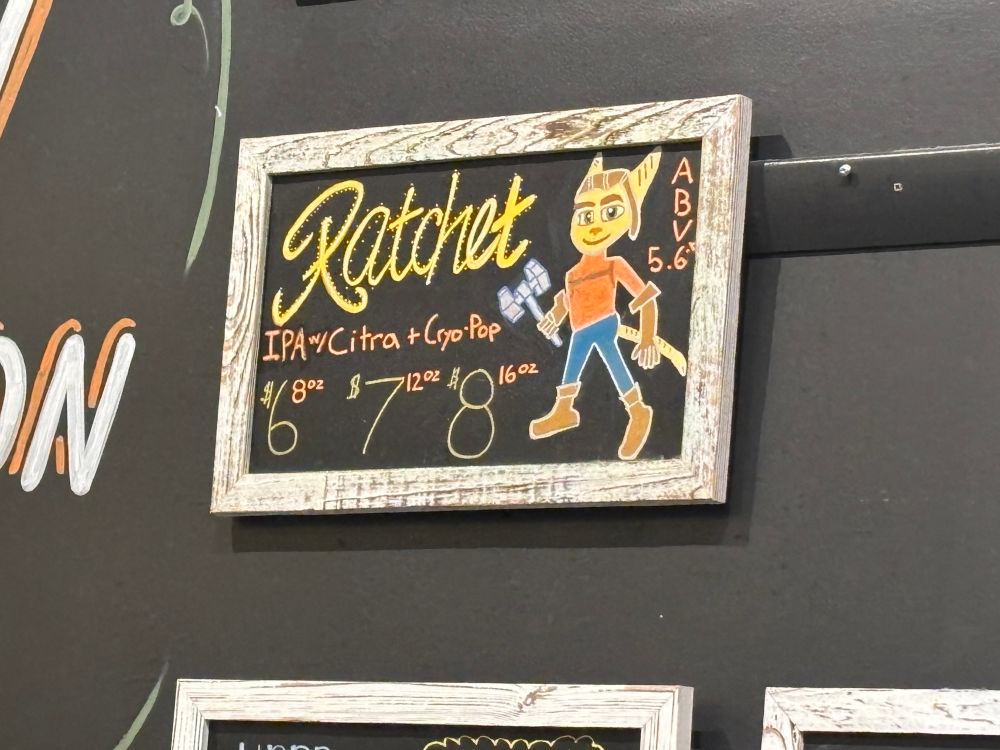 Ratchet
IPA w/ Citra + Cryo-Pop
$6 8oz $7 12oz $8 16oz
A
B
V
5.6%
ON